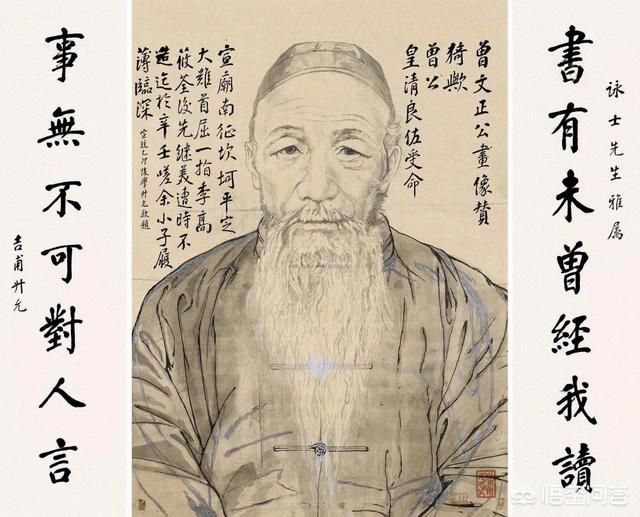 詠士先生雅屬
書有未曾經我讀
曾文正公畫像贊
猗歟
曾公
皇清良佐受命
宣廟南征坎坷平定
大難首屈一指李高
筱荃後先繼美遭時不
造迄於辛壬嗟余小子履
薄臨深
宣統乙卯後學升允敬題
事無不可對人言
吉甫升允
悟空问答